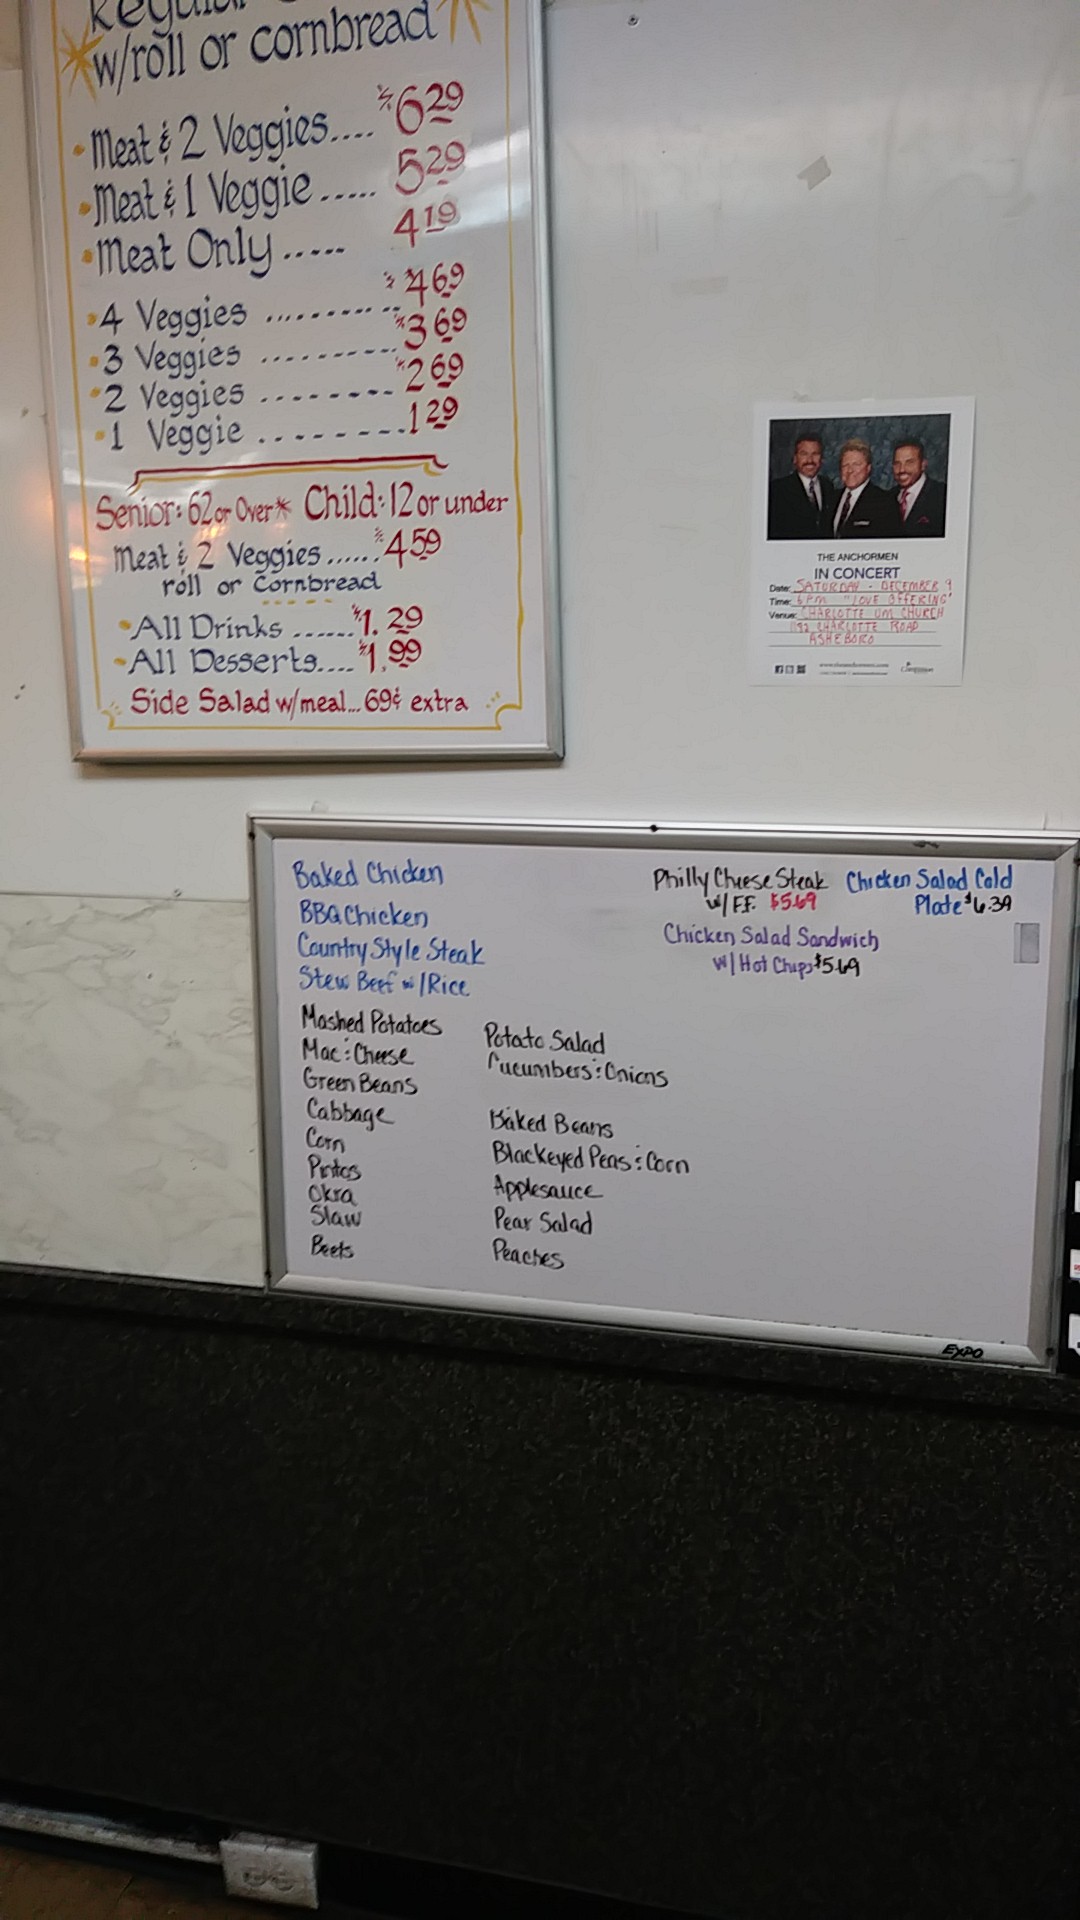 Regular
w/roll or cornbread
•Meat & 2 Veggies.... $6.29
•Meat & 1 Veggie ..... 5.29
•Meat Only ..... 4.19
•4 Veggies .......... $4.69
•3 Veggies .......... $3.69
•2 Veggies ......... $2.69
•1 Veggie ......... 1.29
Senior: 62 or Over* Child: 12 or under
Meat & 2 Veggies...... $4.59
roll or Cornbread
•All Drinks ...... $1.29
•All Desserts.... $1.99
Side Salad w/meal... 69¢ extra
THE ANCHORMEN
IN CONCERT
Date: SATURDAY - DECEMBER 9
Time: 6PM "LOVE OFFERING"
Venue: CHARLOTTE UM CHURCH
CHARLOTTE ROAD
ASHEBORO
Baked Chicken
BBQ Chicken
Country Style Steak
Stew Beef w/Rice
Mashed Potatoes
Mac & Cheese
Green Beans
Cabbage
Corn
Pintos
Okra
Slaw
Beets
Potato Salad
Cucumbers & Onions
Baked Beans
Blackeyed Peas & Corn
Applesauce
Pear Salad
Peaches
Philly Cheese Steak
w/F.F. $5.69
Chicken Salad Sandwich
w/Hot Chips $5.69
Chicken Salad Cold
Plate $6.39
EXPO